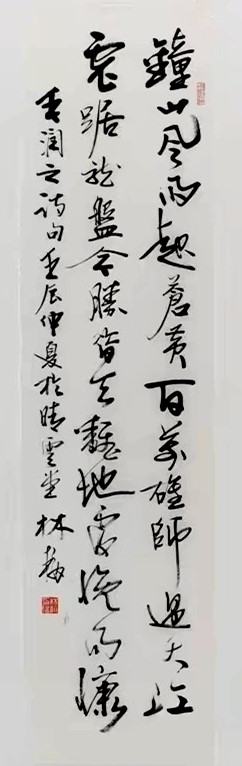 鐘山風雨起蒼黃百萬雄師過大江
虎踞龍盤今勝昔天翻地覆慨而慷
毛潤之詩句壬辰仲夏於晴雲堂 林